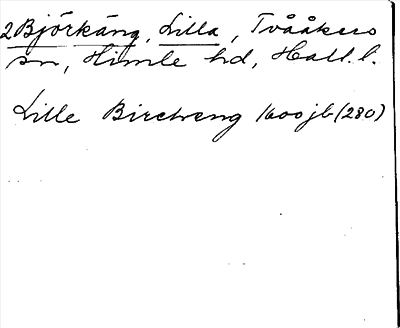 2 Björkäng, Lilla, Tvååkers
sn, Himle hd, Hall. l.
Lille Bircheng 1600 jb (280)